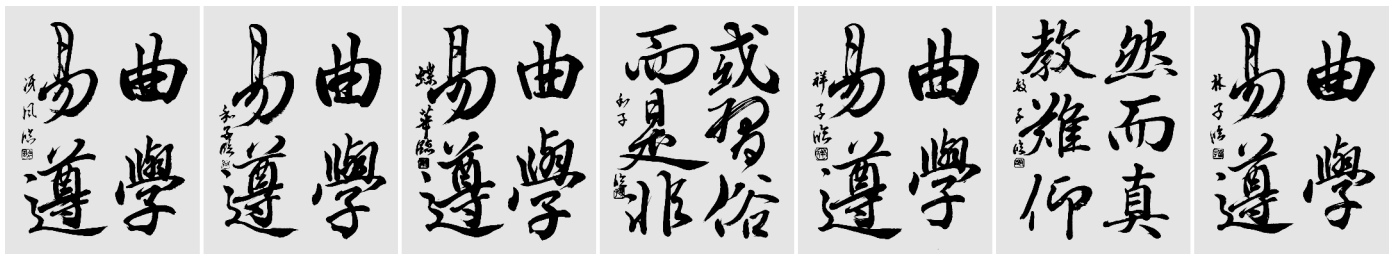 曲學
易遵
曲學
易遵
和子臨
曲學
易遵
蝶華臨
或習俗
而是非
和子臨
曲學
易遵
祥子臨
然而真
教難仰
敏子臨
曲學
易遵
林子臨